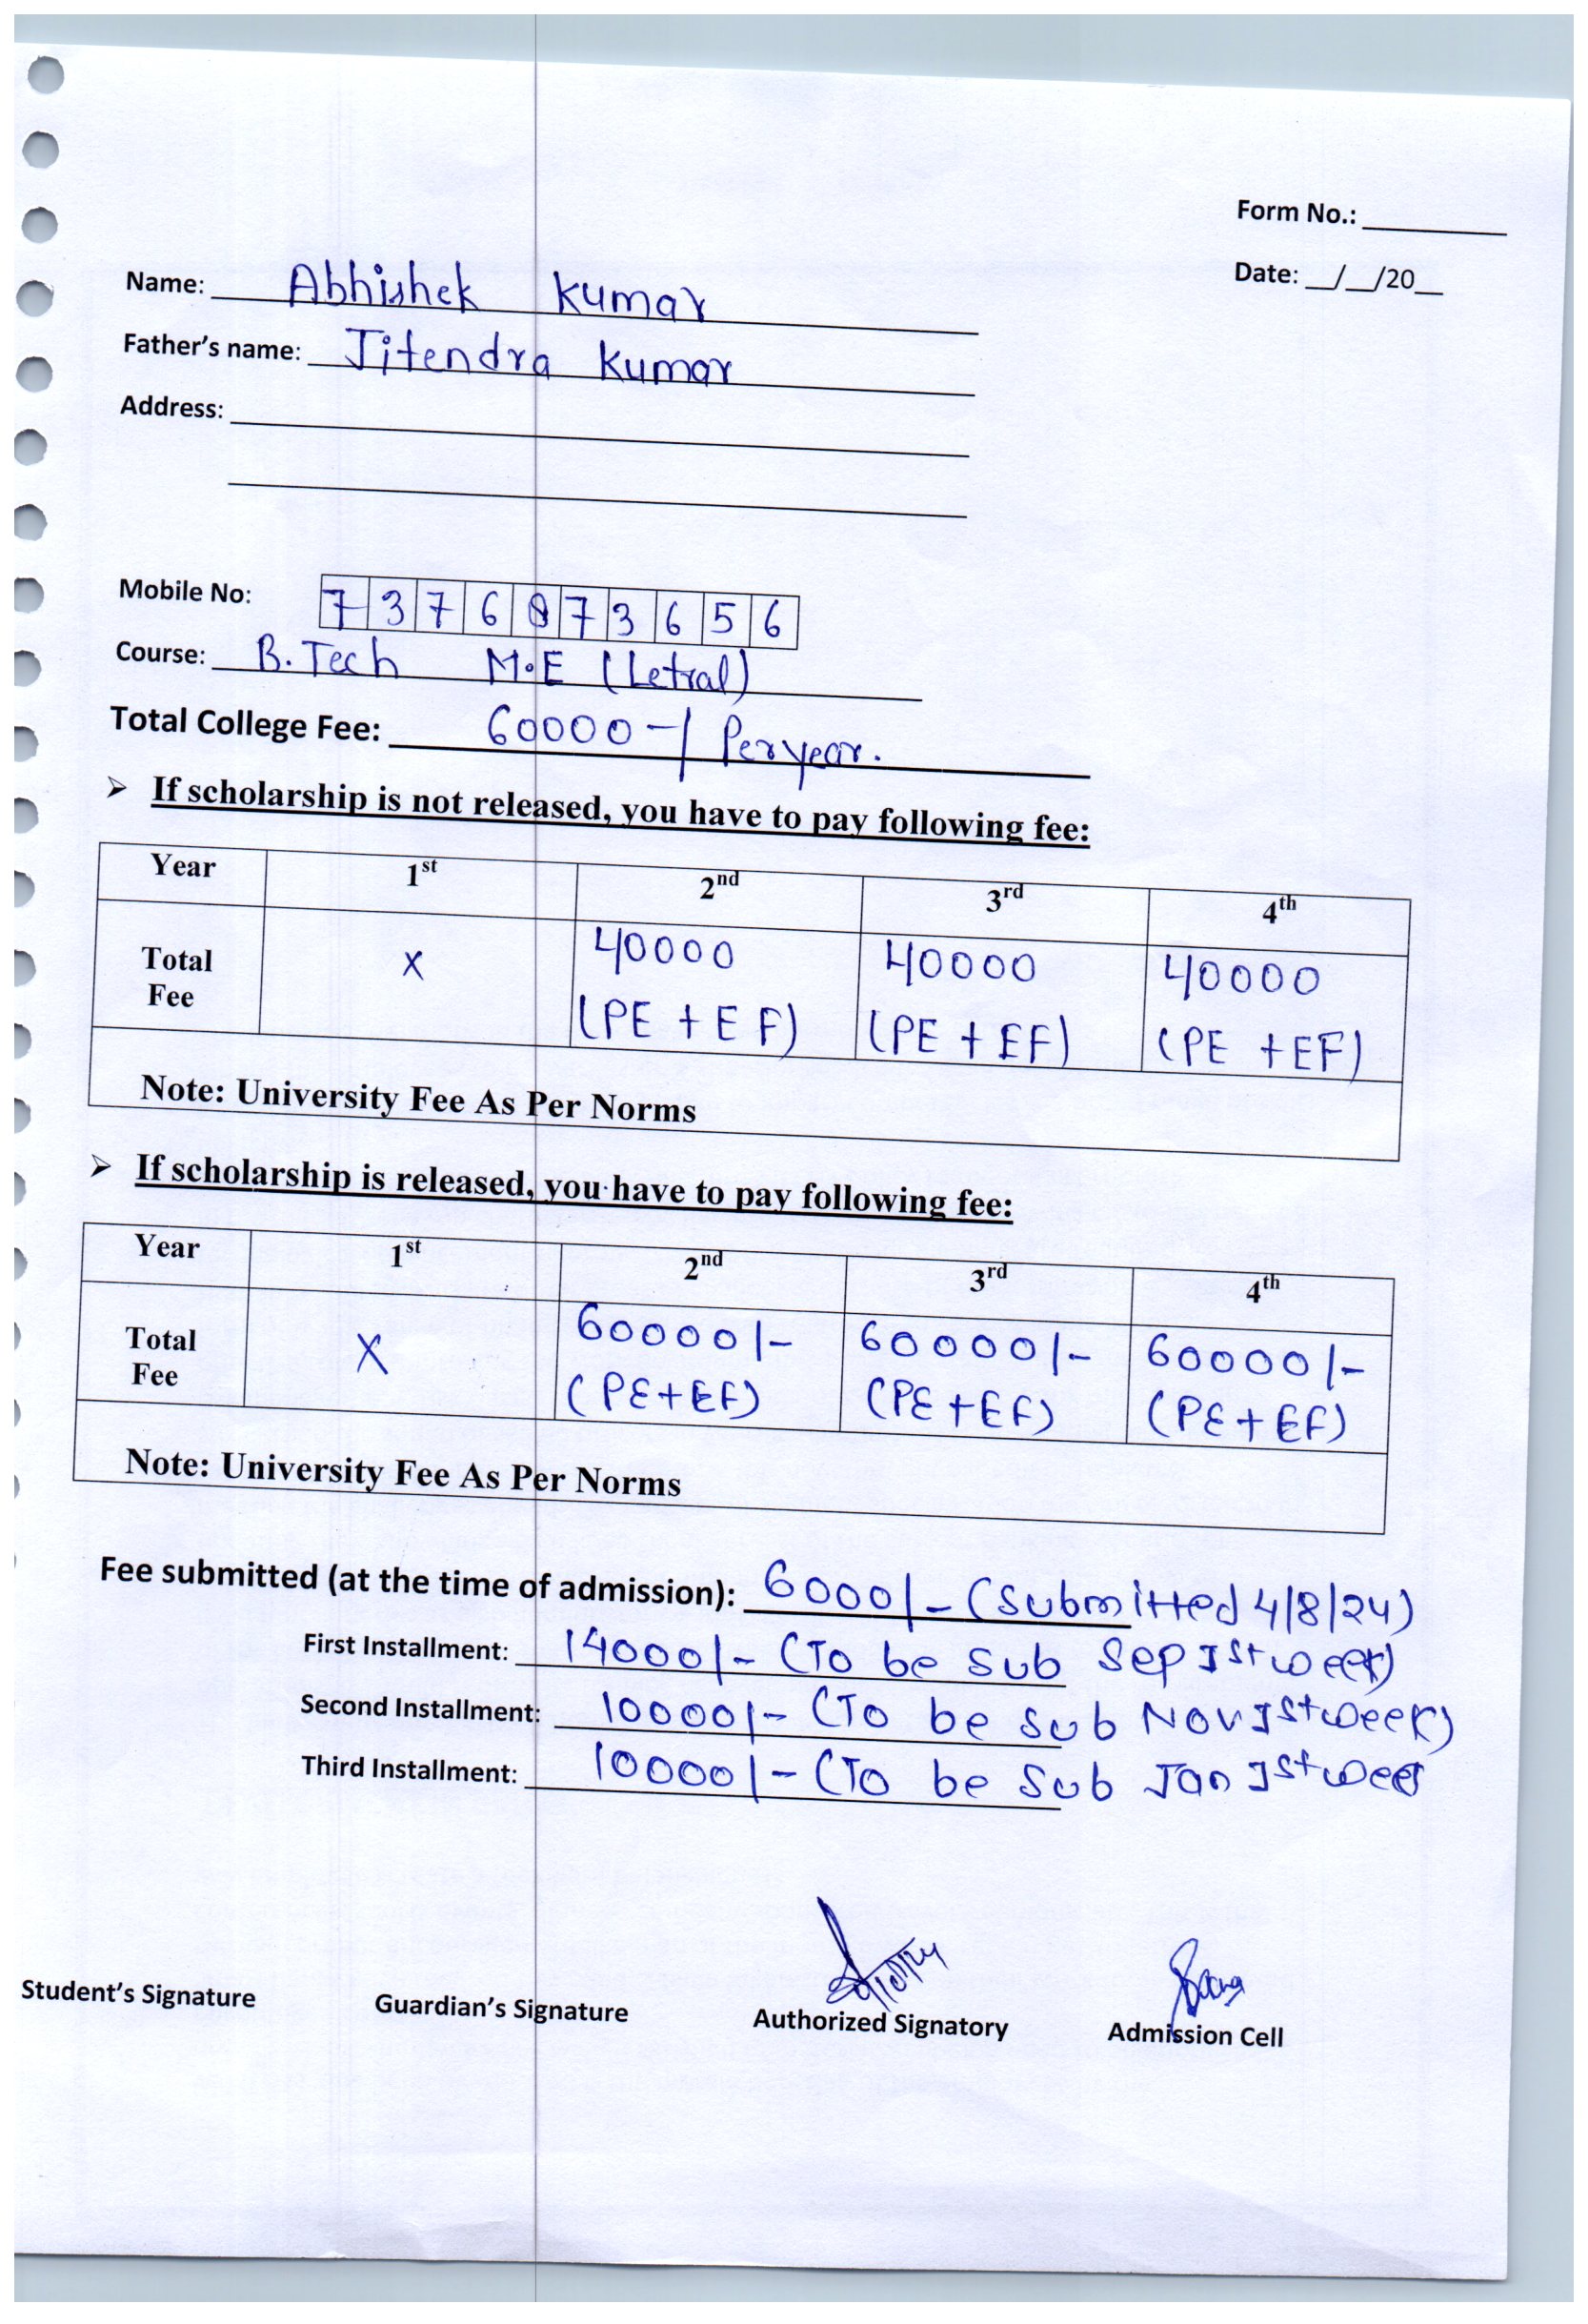 Form No.: ________
Date: __/__/20__
Name: Abhishek Kumar
Father's name: Jitendra Kumar
Address:
Mobile No: 7 3 7 6 8 7 3 6 5 6
Course: B.Tech M.E (Letral)
Total College Fee: 60000-/ Per year.
➢ If scholarship is not released, you have to pay following fee:
Year 1st 2nd 3rd 4th
Total Fee X 40000 (PE + EF) 40000 (PE + EF) 40000 (PE + EF)
Note: University Fee As Per Norms
➢ If scholarship is released, you have to pay following fee:
Year 1st 2nd 3rd 4th
Total Fee X 60000/- (PE+EF) 60000/- (PE+EF) 60000/- (PE+EF)
Note: University Fee As Per Norms
Fee submitted (at the time of admission): 6000/- (Submitted 4/8/24)
First Installment: 14000/- (To be sub Sep Ist week)
Second Installment: 10000/- (To be sub Nov Ist week)
Third Installment: 10000/- (To be sub Jan Ist week
Student's Signature Guardian's Signature Authorized Signatory Admission Cell